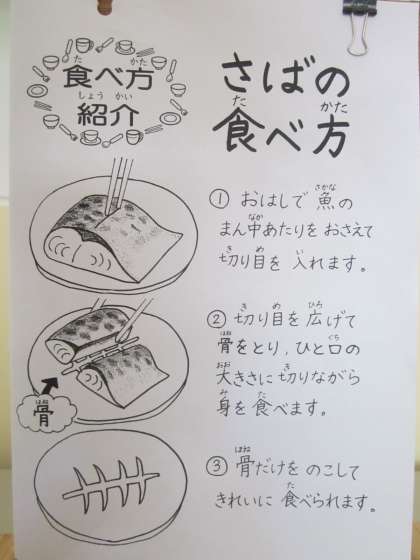 食べ方
紹介
さばの
食べ方
① おはしで 魚の
まん中あたりを おさえて
切り目を 入れます。
② 切り目を 広げて
骨をとり,ひと口の
大きさに 切りながら
身を 食べます。
骨
③ 骨だけを のこして
きれいに 食べられます。